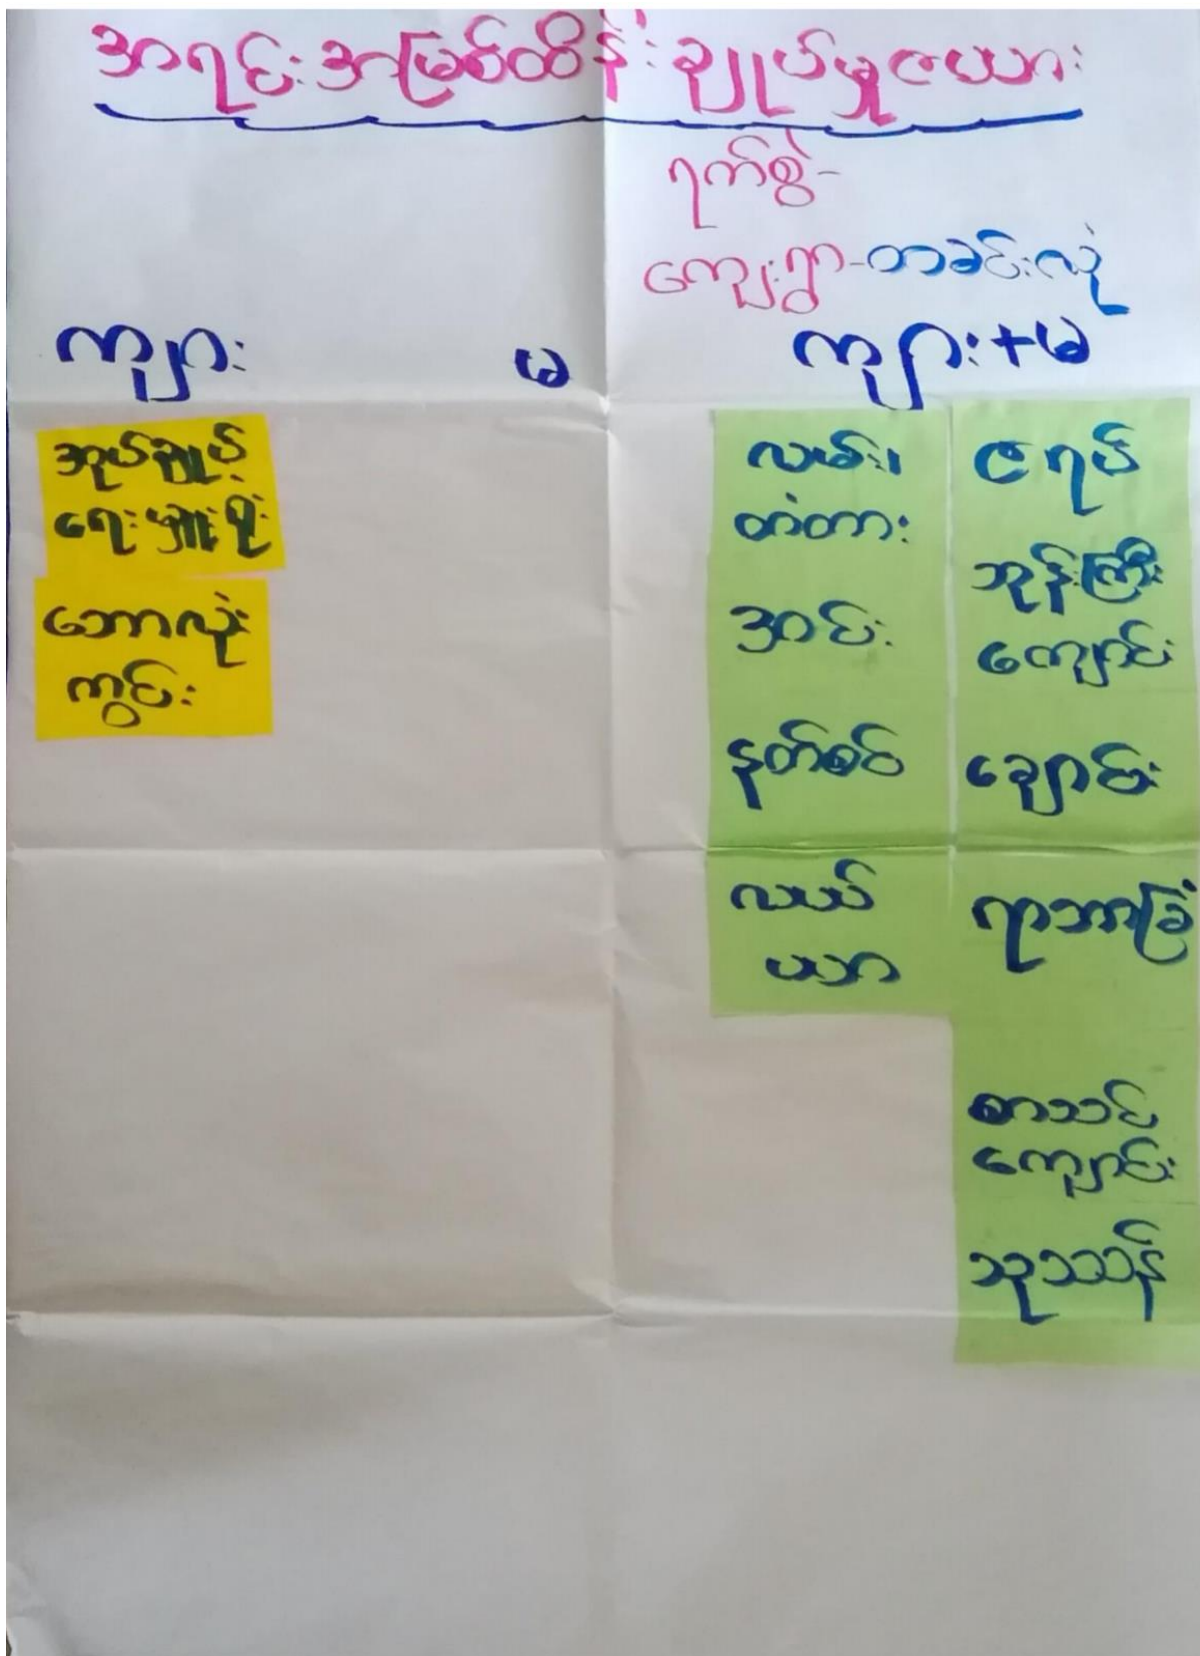 အရင်းအမြစ်ထိန်းချုပ်မှုဇယား
ရက်စွဲ-
ကျေးရွာ-တခင်းလုံ
ကျား မ ကျား+မ
အုပ်ချုပ်
ရေးမှူးရုံး
ဘောလုံး
ကွင်း
လမ်း၊
တံတား
အင်း
နတ်စင်
လယ်
ယာ
ဇရပ်
ဘုန်းကြီး
ကျောင်း
ချောင်း
ရာဘာခြံ
စာသင်
ကျောင်း
သုသာန်